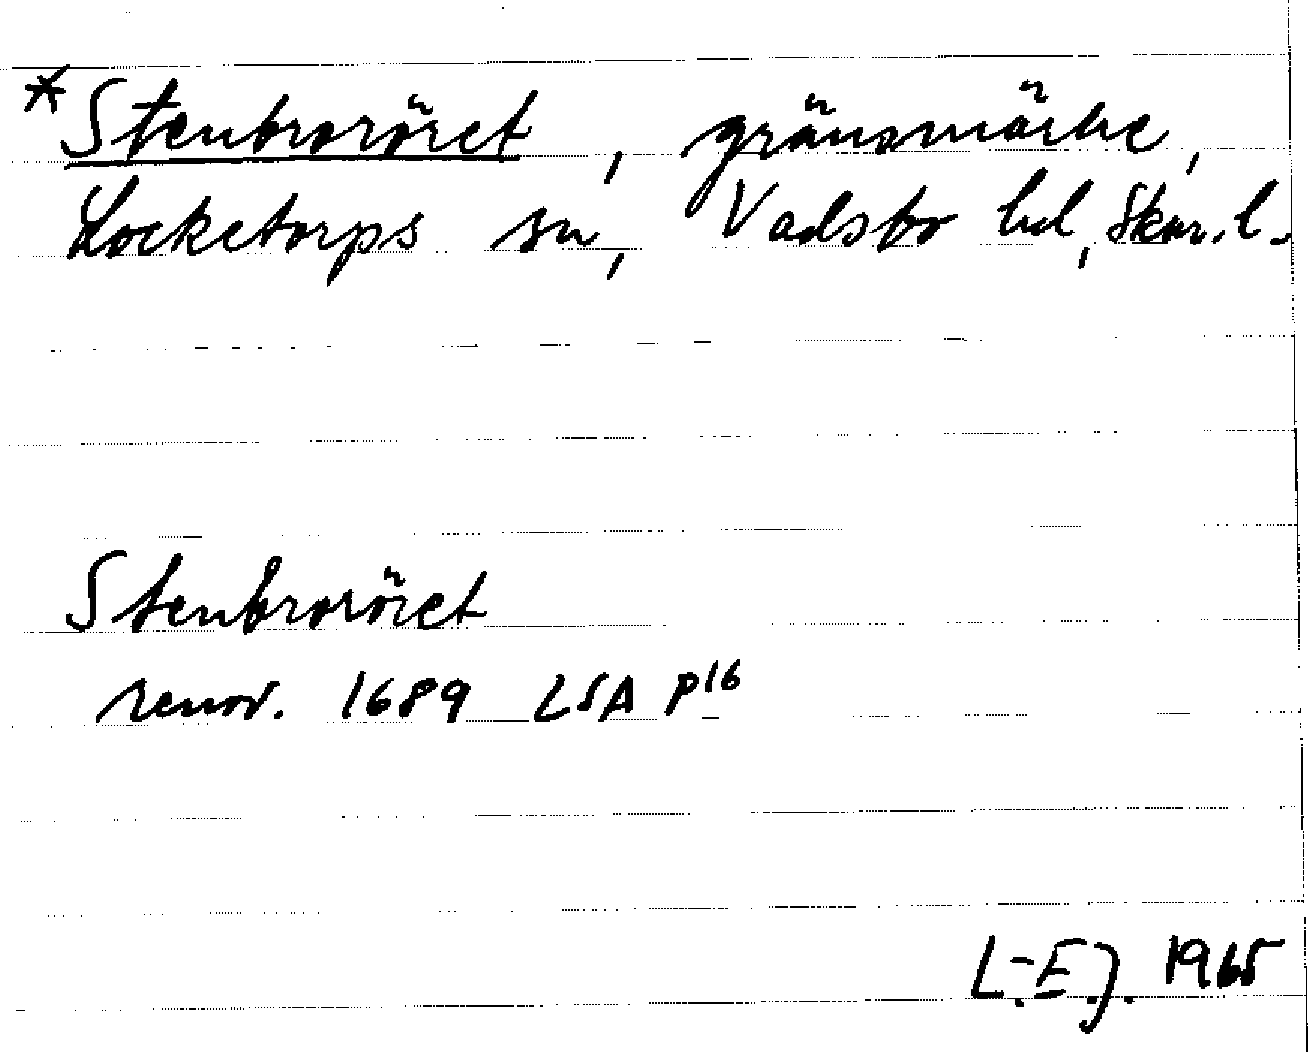 *Stenbroröret, gränsmärke,
Locketorps sn, Vadsbo hd, Skar. l.
Stenbroröret
renov. 1689 LSA P16
L.-E.J. 1965